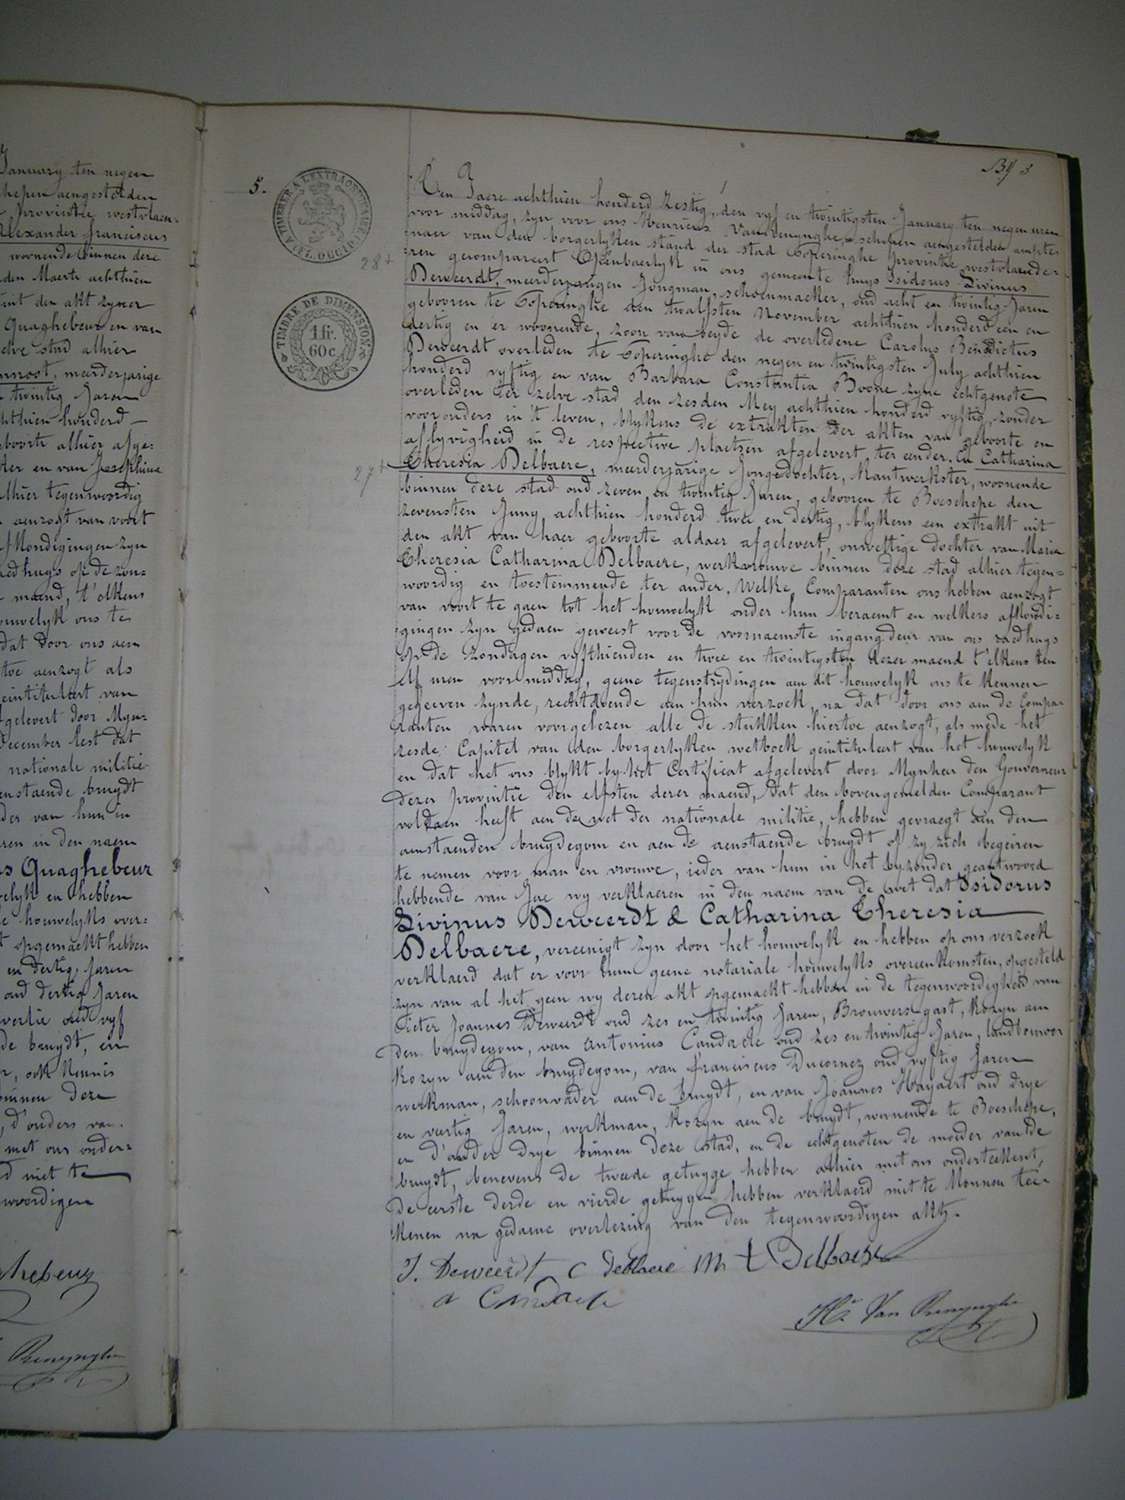 January ten negen
hepen aengestelden
provintie westvlaen-
Alexander franciscus
woonende binnen deze
den Maerte achthien
uit den akt zyner
Quaghebeur en van
zelve stad alhier
meerderjarige
twintig Jaren
achthien honderd
geboorte alhier afge-
ter en van Josephine
alhier tegenwoordig
aenzogt van voort
afkondigingen zyn
raedhuys op de zon-
maend, t'elkens
houwelyk ons te
dat door ons aen
toe aenzogt als
geintituleert van
afgelevert door Myn-
December lest dat
nationale militie
aenstaende bruydt
der van hun in
ren in den naem
Quaghebeur
elyk en hebben
houwelyks over-
opgemaekt hebben
en dertig Jaren
oud dertig Jaren
oud vyf
de bruydt, en
ook Kennis
binnen deze
d'ouders van
met ons onder-
niet te
woordigen
hebeur
Renynghe
Bl 3
5.
TIMBRE A L'EXTRAORDINAIRE
TIMBRE DE DIMENSION
1 fr.
60 c.
28+
27+
Ten Jaere achthien honderd zestig, den vyf en twintigsten January ten negen uren
voor middag, zyn voor ons Henricus Vanrenynghe schepen aengestelden ambte-
naer van den borgerlyken stand der stad Poperinghe provintie westvlaende-
ren gecompareert Openbaerlyk in ons gemeente huys Isidorus Livinus
Deweerdt, meerderjarigen Jongman, schoenmaeker, oud acht en twintig Jaren
gebooren te Poperinghe den twalfsten November achthien honderd een en
dertig en er woonende, zoon van beyde de overledene Carolus Benedictus
Deweerdt overleden te Poperinghe den negen en twintigsten July achthien
honderd vyftig en van Barbara Constantia Boone zyne echtgenote
overleden ter zelve stad den zesden Mey achthien honderd vyftig, zonder
voorouders in 't leven, blykens de extrakten der akten van geboorte en
aflyvigheid in de respective plaetzen afgelevert, ter eender, En Catharina
Theresia Delbaere, meerderjarige Jongedochter, Kantwerkster, woonende
binnen deze stad oud zeven en twintig Jaren, gebooren te Boeschepe den
zevensten Juny achthien honderd twee en dertig, blykens een extrakt uit
den akt van haer geboorte aldaer afgelevert, onwettige dochter van Maria
Theresia Catharina Delbaere, werkvrouwe binnen deze stad alhier tegen=
woordig en toestemmende ter ander, Welke Comparanten ons hebben aenzogt
van voort te gaen tot het houwelyk onder hun beraemt en welkers afkondi-
gingen zyn gedaen geweest voor de voornaemste ingangdeur van ons raedhuys
op de zondagen vyfthienden en twee en twintigsten dezer maend t'elkens ten
elf uren voor middag, geene tegenstrydingen aen dit houwelyk ons te Kennen
gegeven zynde, rechtdoende aen hun verzoek, na dat door ons aen de Compa-
ranten waren voorgelezen alle de stukken hiertoe aenzogt, als mede het
zesde Capitel van den borgerlyken wetboek geintituleert van het huwelyk
en dat het ons blykt by het Certificat afgelevert door Mynheer den Gouverneur
dezer provintie den elfsten dezer maend, dat den bovengemelden Comparant
voldaen heeft aen de wet der nationale militie, hebben gevraegt aen den
aenstaenden bruydegom en aen de aenstaende bruydt of zy zich begeiren
te nemen voor man en vrouwe, ieder van hun in het byzonder geantwoord
hebbende van Jae wy verklaeren in den naem van de wet dat Isidorus
Livinus Deweerdt & Catharina Theresia
Delbaere, vereenigt zyn door het houwelyk en hebben op ons verzoek
verklaerd dat er voor hun geene notariale houwelyks overeenkomsten, opgesteld
zyn van al het geen wy dezen akt opgemaekt hebben in de tegenwoordigheid van
Pieter Joannes Deweerdt oud zes en twintig Jaren, Brouwers gast, Kozyn aen
den bruydegom, van Antonius Candaele oud zes en twintig Jaren, landbouwer
Kozyn aen den bruydegom, van franciscus Ducornez oud vyftig Jaren
werkman, schoonvader aen de bruydt, en van Joannes Hayaert oud drye
en veertig Jaren, werkman, Kozyn aen de bruydt, wunende te Boeschepe,
en d'ander drye binnen deze stad, en de echtgenoten de moeder van de
bruydt, benevens de tweede getuyge hebben alhier met ons onderteekent,
de eerste derde en vierde getuygen hebben verklaerd niet te Konnen tee-
kenen na gedaene overlezing van den tegenwoordigen akt.
I. Deweerdt C delbaere M t Delbaere
a Candaele
He Van Renynghe